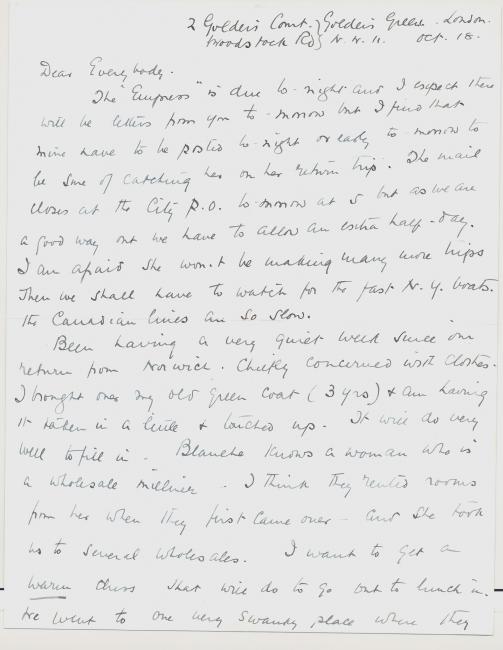 2 Golders Court. } Golders Green. London.
Woodstock Rd } N.W. 11. Oct. 18.
Dear Everybody.
The "Empress" is due to-night and I expect there
will be letters from you to-morrow but I find that
mine have to be posted to-night or early to-morrow to
be sure of catching her on her return trip. The mail
closes at the City P.O. to-morrow at 5 but as we are
a good way out we have to allow an extra half-day.
I am afraid she won't be making many more trips
Then we shall have to watch for the fast N.Y. boats.
The Canadian lines are so slow.
Been having a very quiet week since our
return from Norwich. Chiefly concerned with clothes.
I brought over my old green coat (3 yrs) & am having
it taken in a little & touched up. It will do very
well to fill in. Blanche knows a woman who is
a wholesale milliner - I think they rented rooms
from her when they first came over - and she took
us to several wholesales. I want to get a
warm dress that will do to go out to lunch in.
We went to one very swanky place where they